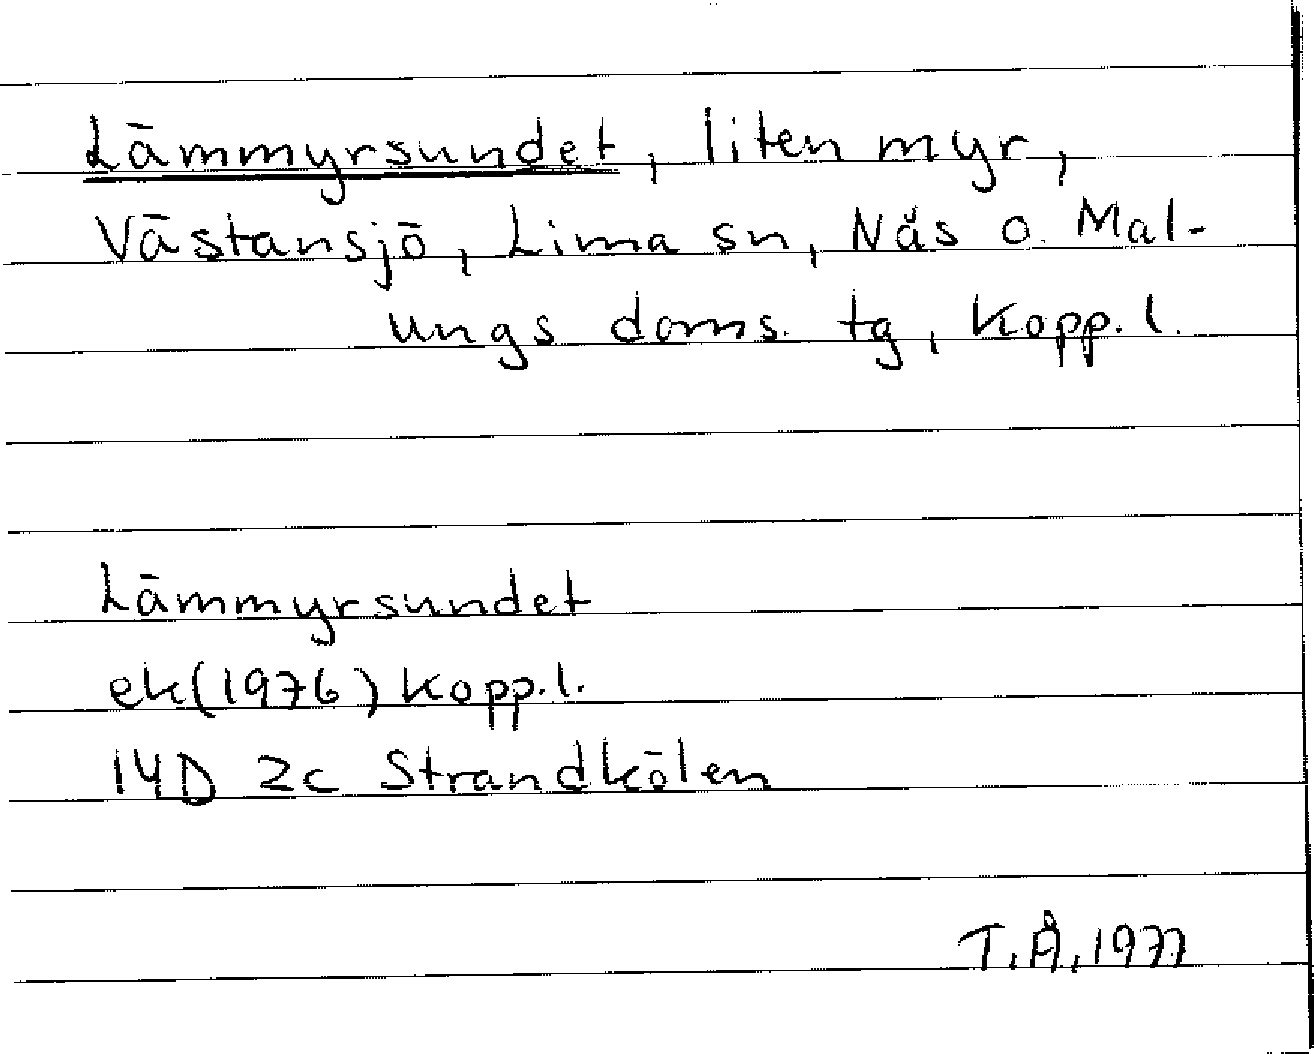 Lämmyrsundet, liten myr,
Västansjö, Lima sn, Nås o. Mal-
ungs doms. tg, Kopp. l.
Lämmyrsundet
ek(1976) Kopp. l.
14D 2c Strandkölen
T.Å. 1977